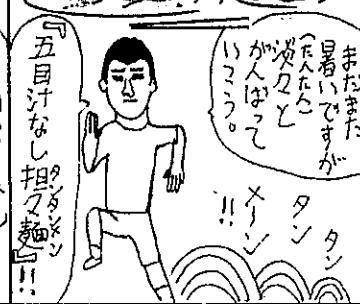 まだまだ
暑いですが
淡々と
(たんたん)
がんばって
いこう。
タン
タン
メーン
!!
『五目汁なし担々麺』!!
タンタンメン